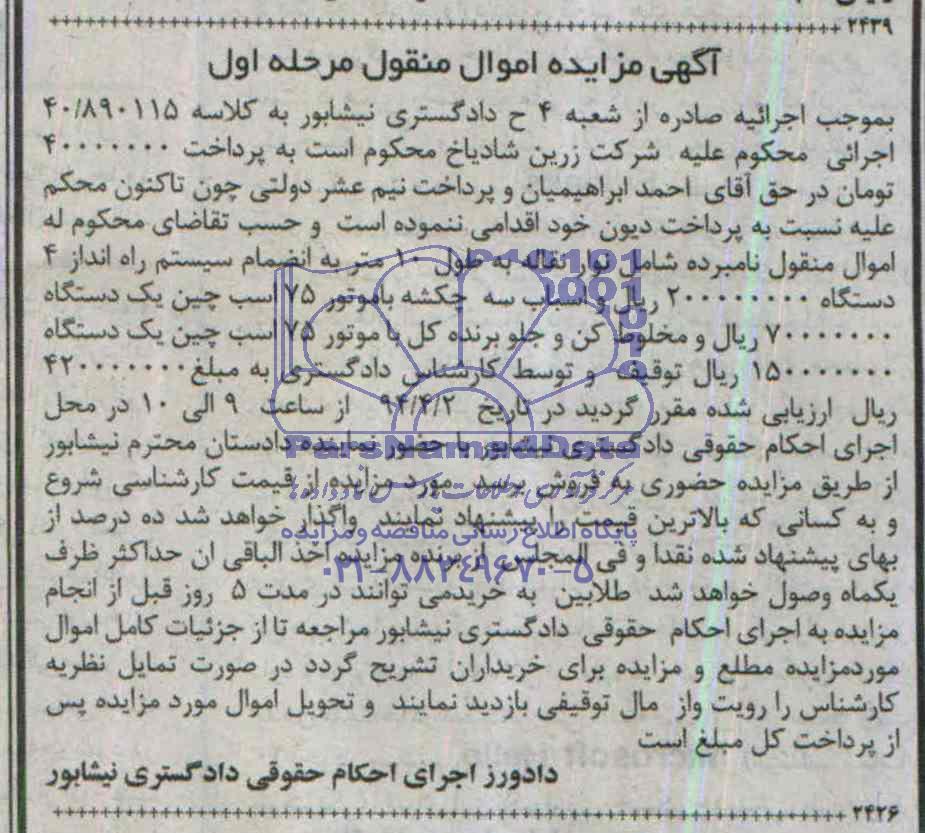 ۲۴۳۹
آگهی مزایده اموال منقول مرحله اول
بموجب اجرائیه صادره از شعبه ۴ ح دادگستری نیشابور به کلاسه ۴۰/۸۹۰۱۱۵
اجرائی محکوم علیه شرکت زرین شادیاخ محکوم است به پرداخت ۴۰۰۰۰۰۰۰
تومان در حق آقای احمد ابراهیمیان و پرداخت نیم عشر دولتی چون تاکنون محکم
علیه نسبت به پرداخت دیون خود اقدامی ننموده است و حسب تقاضای محکوم له
اموال منقول نامبرده شامل نوار نقاله به طول ۱۰ متر به انضمام سیستم راه انداز ۴
دستگاه ۲۰۰۰۰۰۰۰۰ ریال و اسباب سه چکشه باموتور ۷۵ اسب چین یک دستگاه
۷۰۰۰۰۰۰۰ ریال و مخلوط کن و جلو برنده کل با موتور ۷۵ اسب چین یک دستگاه
۱۵۰۰۰۰۰۰۰ ریال توقیف و توسط کارشناس دادگستری به مبلغ ۴۲۰۰۰۰۰۰۰
ریال ارزیابی شده مقرر گردید در تاریخ ۹۴/۴/۲ از ساعت ۹ الی ۱۰ در محل
اجرای احکام حقوقی دادگستری نیشابور با حضور نماینده دادستان محترم نیشابور
از طریق مزایده حضوری به فروش برسد مورد مزایده از قیمت کارشناسی شروع
و به کسانی که بالاترین قیمت را پیشنهاد نمایند واگذار خواهد شد ده درصد از
بهای پیشنهاد شده نقدا و فی المجلس از برنده مزایده اخذ الباقی ان حداکثر ظرف
یکماه وصول خواهد شد طلابین به خریدمی توانند در مدت ۵ روز قبل از انجام
مزایده به اجرای احکام حقوقی دادگستری نیشابور مراجعه تا از جزئیات کامل اموال
موردمزایده مطلع و مزایده برای خریداران تشریح گردد در صورت تمایل نظریه
کارشناس را رویت واز مال توقیفی بازدید نمایند و تحویل اموال مورد مزایده پس
از پرداخت کل مبلغ است
دادورز اجرای احکام حقوقی دادگستری نیشابور
۲۴۲۶
ParsNamadData
پایگاه اطلاع رسانی مناقصه و مزایده
۰۲۱-۸۸۳۴۹۶۷۰-۵